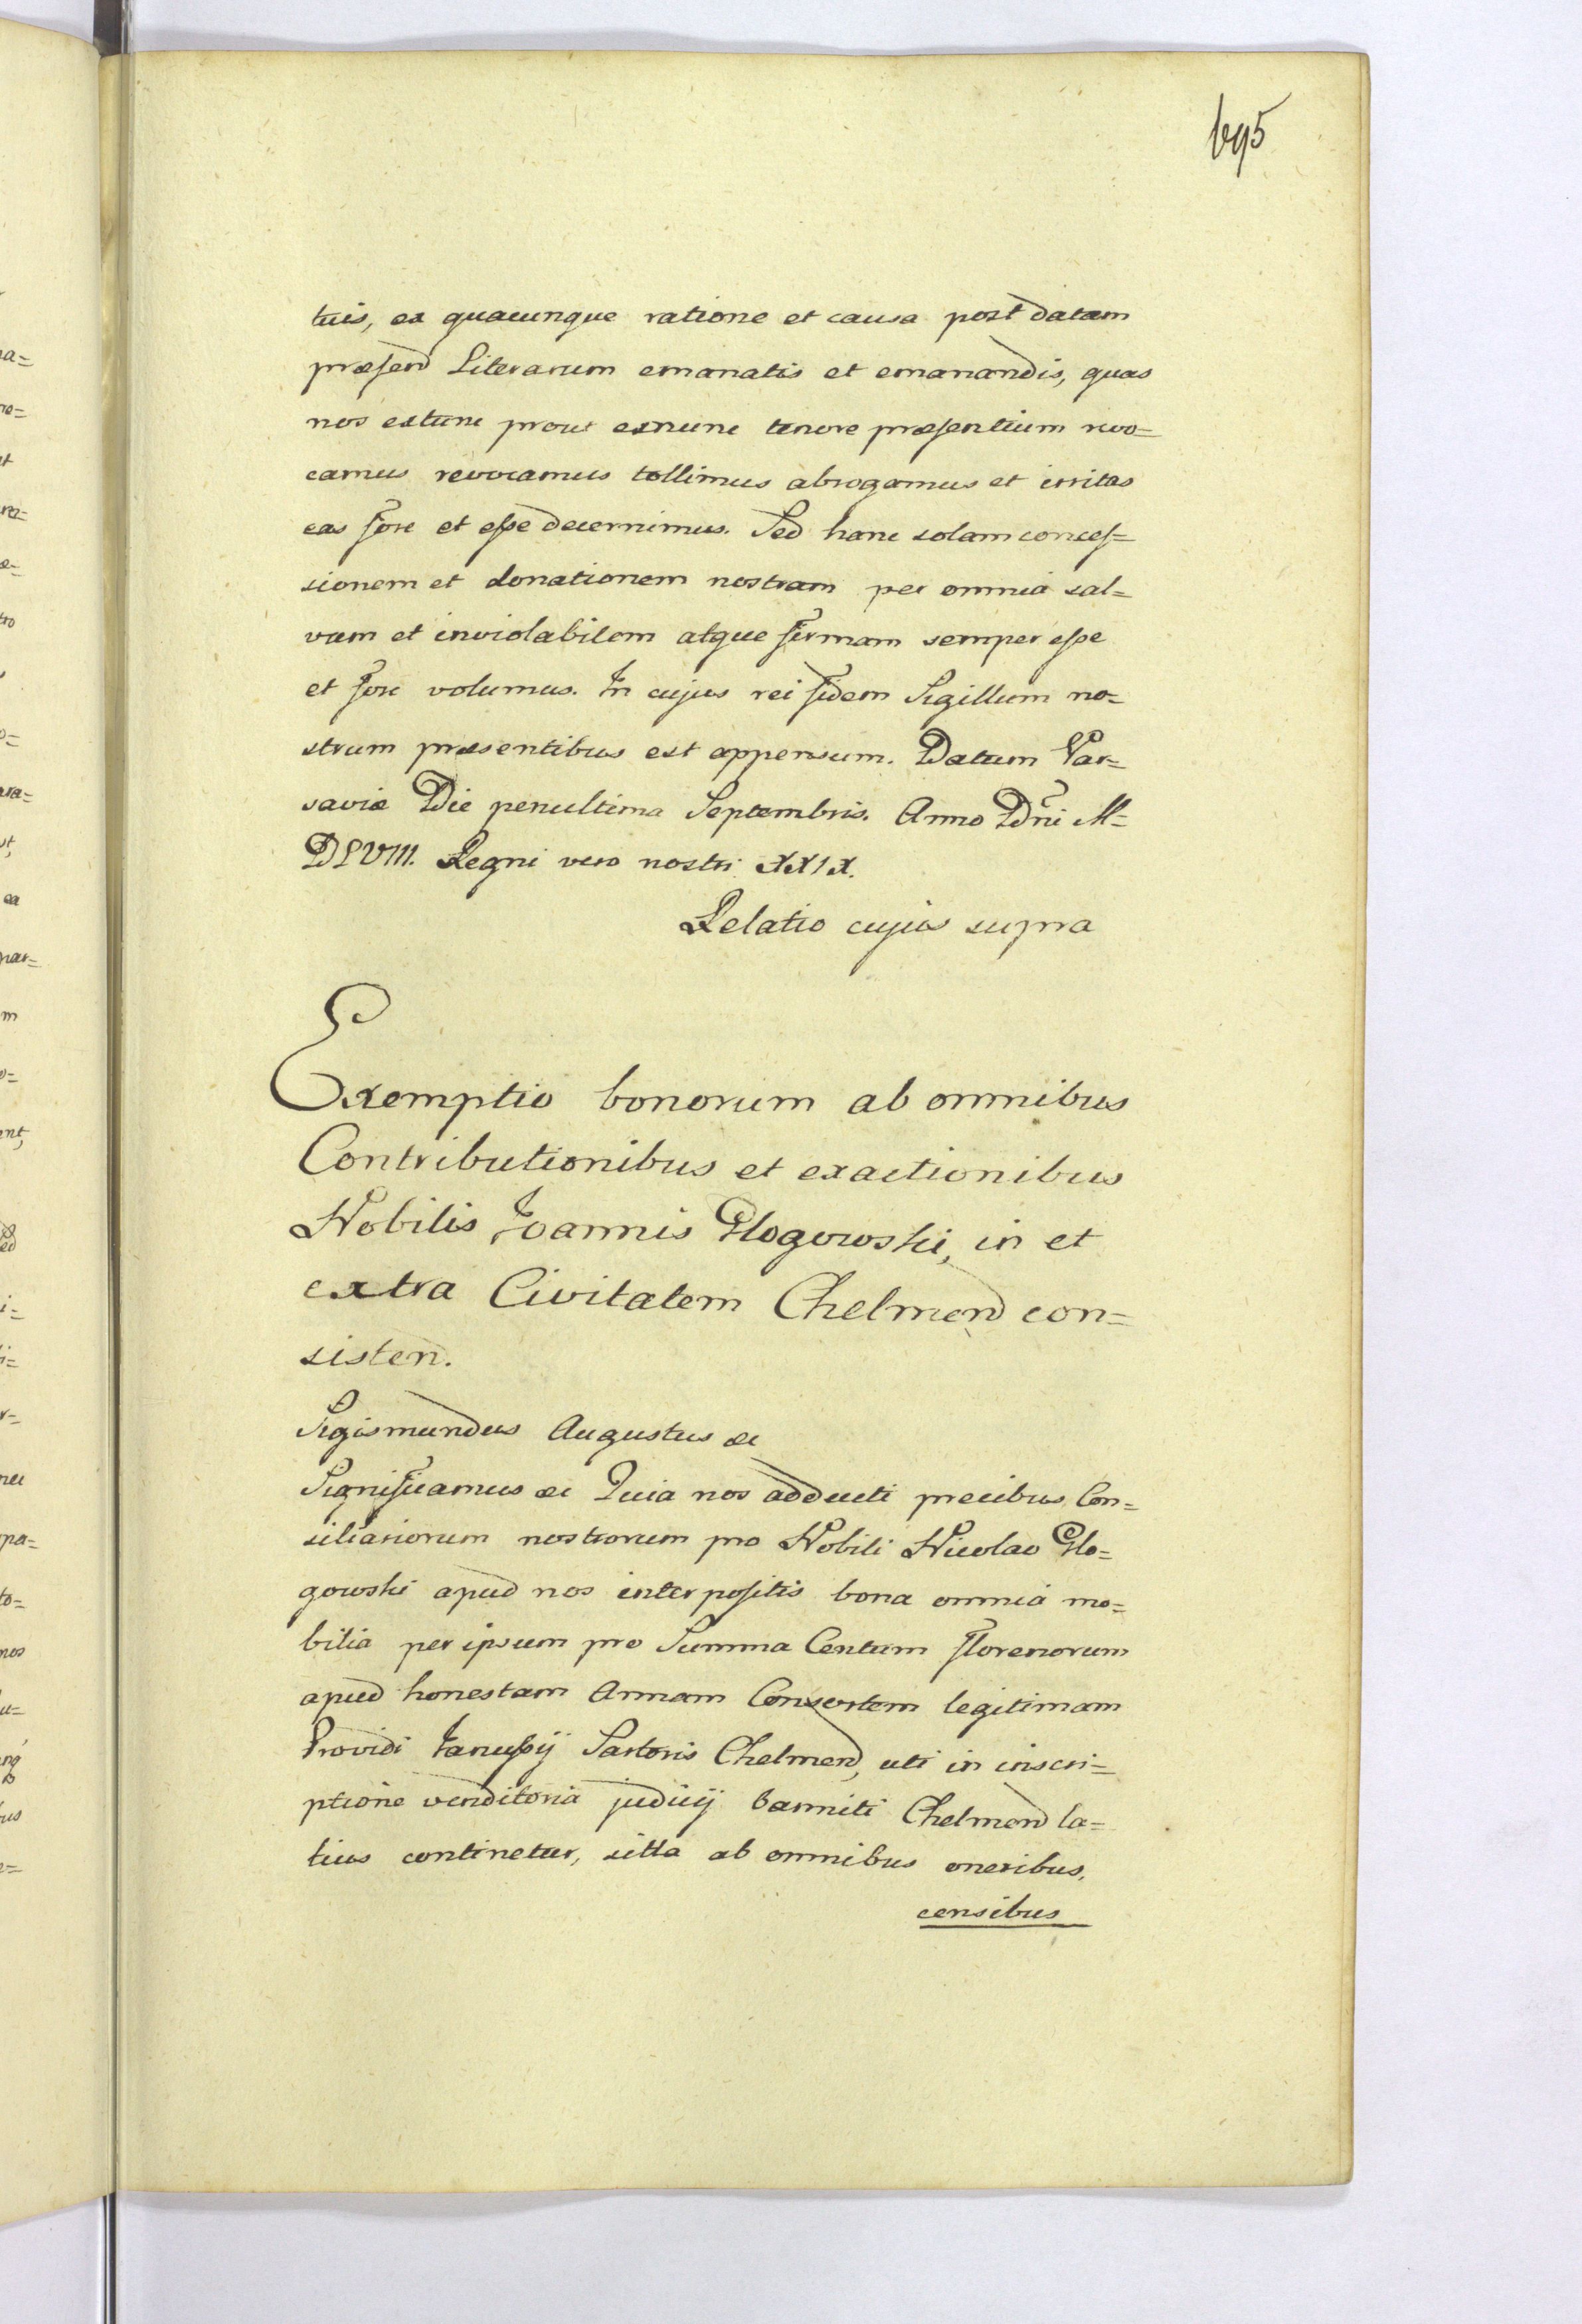 695
tuis, ex quacunque ratione et causa post datam
præsen Literarum emanatis et emanandis, quas
nos extunc prout exnunc tenore præsentium revo=
camus revocamus tollimus abrogamus et irritas
eas fore et esse decernimus. Sed hanc solam conces=
sionem et donationem nostram per omnia sal=
vam et inviolabilem atque firmam semper esse
et fore volumus. In cujus rei fidem Sigillum no=
strum præsentibus est appensum. Datum Var=
saviæ Die penultima Septembris. Anno Dni M=
DLVIII. Regni vero nostri XXIX.
Relatio cujus supra
Exemptio bonorum ab omnibus
Contributionibus et exactionibus
Nobilis Joannis Glogowski, in et
extra Civitatem Chelmen con=
sisten.
Sigismundus Augustus &c
Significamus &c Quia nos adducti precibus Con=
siliariorum nostrorum pro Nobili Nicolao Glo=
gowski apud nos interpositis bona omnia mo=
bilia per ipsum pro Summa Centum florenorum
apud honestam Annam Consortem legitimam
Providi Janussij Sartoris Chelmen, uti in inscri=
ptione venditoria judicij banniti Chelmen la=
tius continetur, sitta ab omnibus oneribus,
censibus